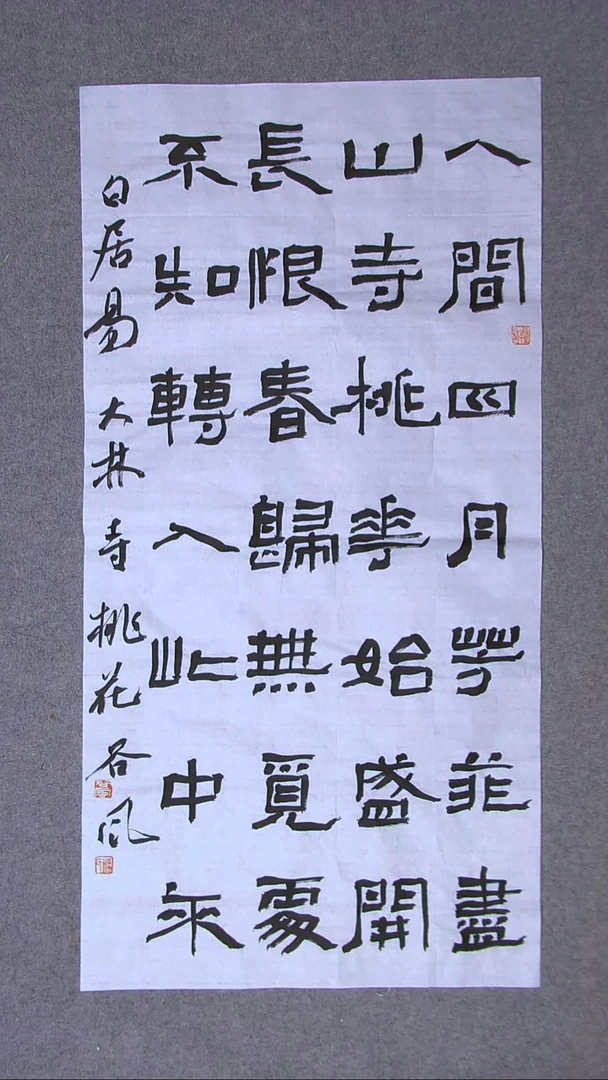 人間四月芳菲盡
山寺桃華始盛開
長恨春歸無覓處
不知轉入此中來
白居易 大林寺 桃花 谷风